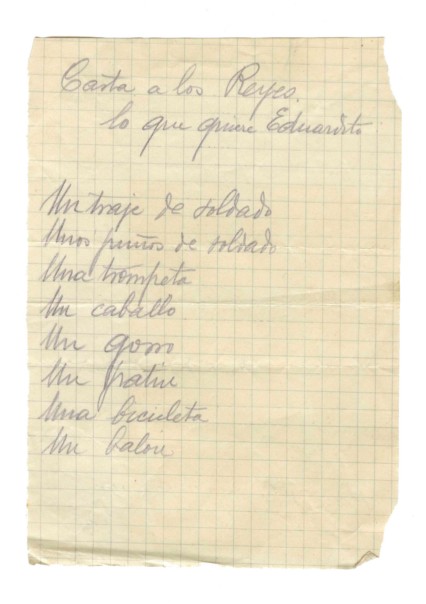 Carta a los Reyes.
lo que quiere Eduardito
Un traje de soldado
Unos puños de soldado
Una trompeta
Un caballo
Un gorro
Un patin
Una bicicleta
Un balon